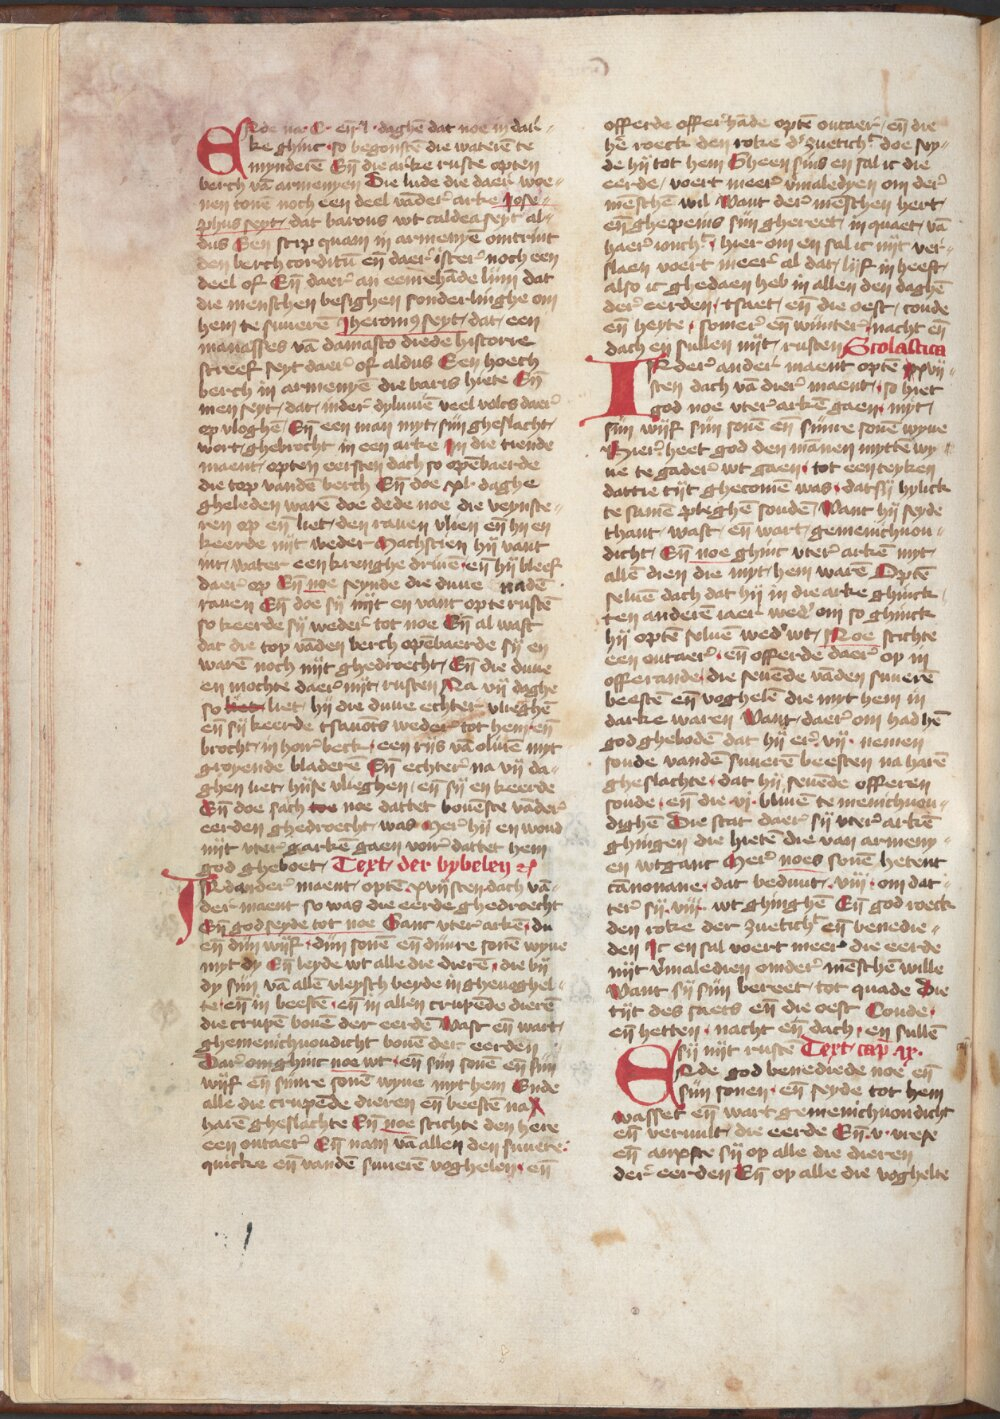 Ende na · C · eñ · l · daghē dat noe in dar-
ke ghinc · so begonstē die waterē te
mynderē Eñ die arke ruste opten
berch vā armenyen Die lude die daer woe-
nen tonē noch een deel vāder arke Jose-
phus seyt / dat barous wt caldea seyt al-
dus Een scip quam in armenyē omtrint
den berch corditū eñ daer ister noch een
deel of Eñ daer an eenrehāde lijm dat
die menschen besighen sonderlinghe om
hem te suuerē Jheronimꝰ seyt / dat / een
manasses vā damasto diede historie
screef seyt daer of aldus Een hoech
berch in armenyē die baris hiete Eñ
men seyt / dat / inder dyluuiē veel volcs daer
op vloghē / Eñ een man myt / sijn gheslacht /
wort / ghebrocht in een arke In die tiende
maent / opten eersten dach so opēbaerde
die top vandē berch Eñ doe xl · daghe
gheleden warē doe dede noe die veynste-
ren op eñ liet / den rauen vlien eñ hi en
keerde nijt weder Machscien hij vant
int / water een krenghe driuē · eñ hij bleef
daer op Eñ noe seynde die duue nadē
rauen Eñ doe sij nijt en vant opte rustē
so keerde sij weder tot noe Eñ al wast
dat die top vāden berch opēbaerde sij en
warē noch nijt ghedroecht / Eñ die duue
en mochte daer nijt / rusten Na vij daghe
so liet liet / hij die duue echter vlieghē
eñ sij keerde tsauots weder tot hem · eñ
brocht / in hoir beck · een rijs vā oliuē myt
groyende bladerē Eñ echter na vij da-
ghen liet / hijse vlieghen / eñ sij en keerde
Eñ doe sach noe dattet bouēste vāder
eerden ghedroecht / was Mer hij en woud
nijt vter arkē gaen voir dattet hem
god gheboet / Text / der bybelen
INdander maent / optē xvijsten dach vā-
der maent so was die eerde ghedroecht
Eñ god seyde tot noe Ganc vter arkē · du
eñ dijn wijf · dijn sonē eñ dijnre sonē wyue
myt dy Eñ leyde wt alle die dierē · die bij
dy sijn vā allē vleysch beyde in gheuoghel-
te · eñ in beestē · eñ in allen crupēde dierē
die crupē bouē der eerdē Wast eñ wart /
ghemenichuoudicht bouē der eerden
Dar om ghinc noe wt · eñ sijn sonē eñ sijn
wijff eñ sijnre sonē wyue myt hem Ende
alle die crupēde dieren eñ beestē na
harē gheslachte Eñ noe stichte den here
een outaer Eñ nam vā allen den suuere
quicke eñ vandē suuerē voghelen · eñ
offerde offerhāde optē outaer · eñ die
he roeck den roke der zueticheit doe sey-
de hij tot hem Gheensins en sal ic die
eerde / voert meer vmaledyen om der
mēsche wil · Want der mēschen hert /
eñ ghepeins sijn ghereet / in quaet / vā
haer ioncht / hier om en sal ic nijt ver-
slaen voert meer al dat / lijf in heeft /
also ic ghedaen heb in allen den daghē
der eerden / tsaet / eñ die oest / coude
eñ heyte · somer eñ winter / nacht eñ
dach en sullen nijt / rusten Scolastica
INder ander maent optē xxvij-
sten dach vā dier maent · so hiet
god noe vter arkē gaen · myt /
sijn wijf sijn sonē eñ sijnre sonē wyue
Hier heet god den mānen myttē wy-
ue te gader wt gaen · tot een teyken
dattie tijt ghecomē was · dat sij bylick
te samē pleghē soudē / Want hij seyde
thant / wast / eñ wart / gemenichuou-
dicht / Eñ noe ghinc vter arkē myt /
allē dien die myt / hem warē Optē
seluē dach dat hij in die arke ghinck ·
ten anderē iaer weder om so ghinck
hij optē seluē weder wt / Noe stichte
een outaer · eñ offerde daer op in
offerande · die seuēde vāden suuerē
beestē eñ voghelē die myt hem in
darke waren Want / daer om had hē
god ghebodē dat hij er · vij · nemen
soude vandē suuerē beesten na harē
gheslachte · dat hij seuēde offeren
soude · eñ die vj · bliuē te menichuou-
dighē Die stat daer sij vter arkē
ghingen die hietē die van armeny-
en wtganc Mer noes sonē hetent
canonane · dat beduut / viij · om dat
ter sij · viij · wt ghinghē Eñ god roeck
den roke der zueticheit eñ benedie-
den Ic en sal voert meer die eerde
nijt vmaledien om der mēschē wille
Want sij sijn bereet / tot quade Die
tijt des saets eñ die oest Coude ·
eñ hetten · nacht eñ dach · en sullē
sij nijt rustē Text / cap ix ·
Ende god benediede noe eñ
sijn sonen · eñ seyde tot hem
wasset eñ wart gemenichuoudicht
eñ veruult / die eerde Eñ · v · viese
eñ anxte sij op alle die dieren
der eerden Eñ op alle die voghelte